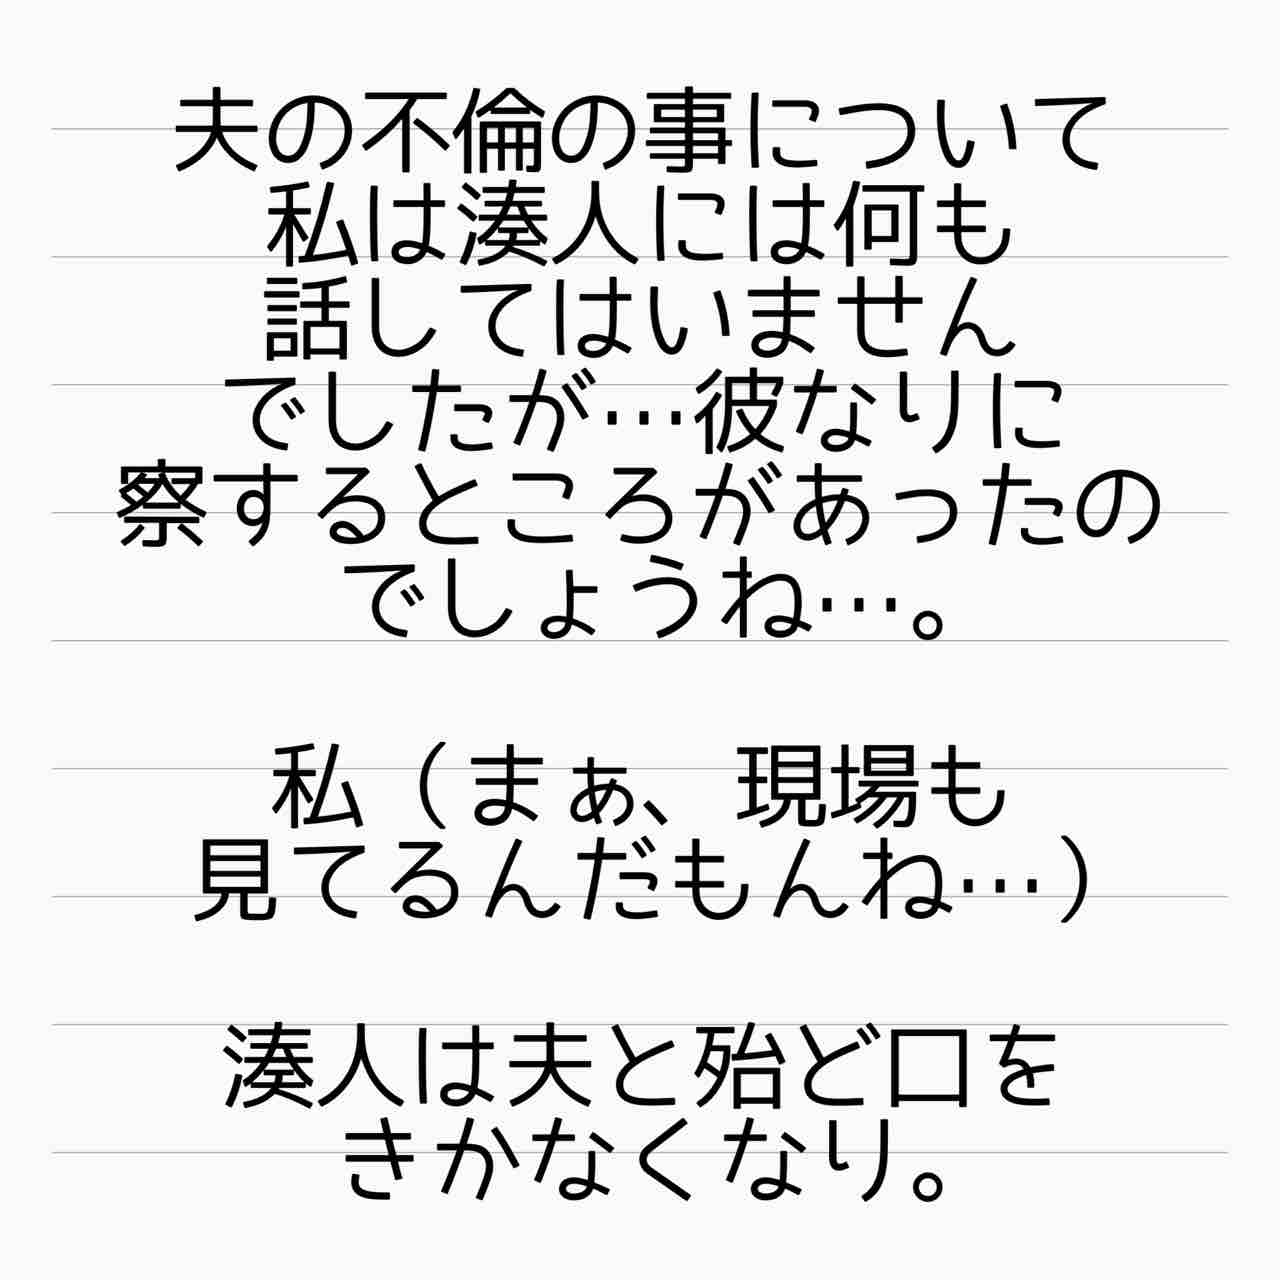 夫の不倫の事について
私は湊人には何も
話してはいません
でしたが…彼なりに
察するところがあったの
でしょうね…。
私（まぁ、現場も
見てるんだもんね…）
湊人は夫と殆ど口を
きかなくなり。